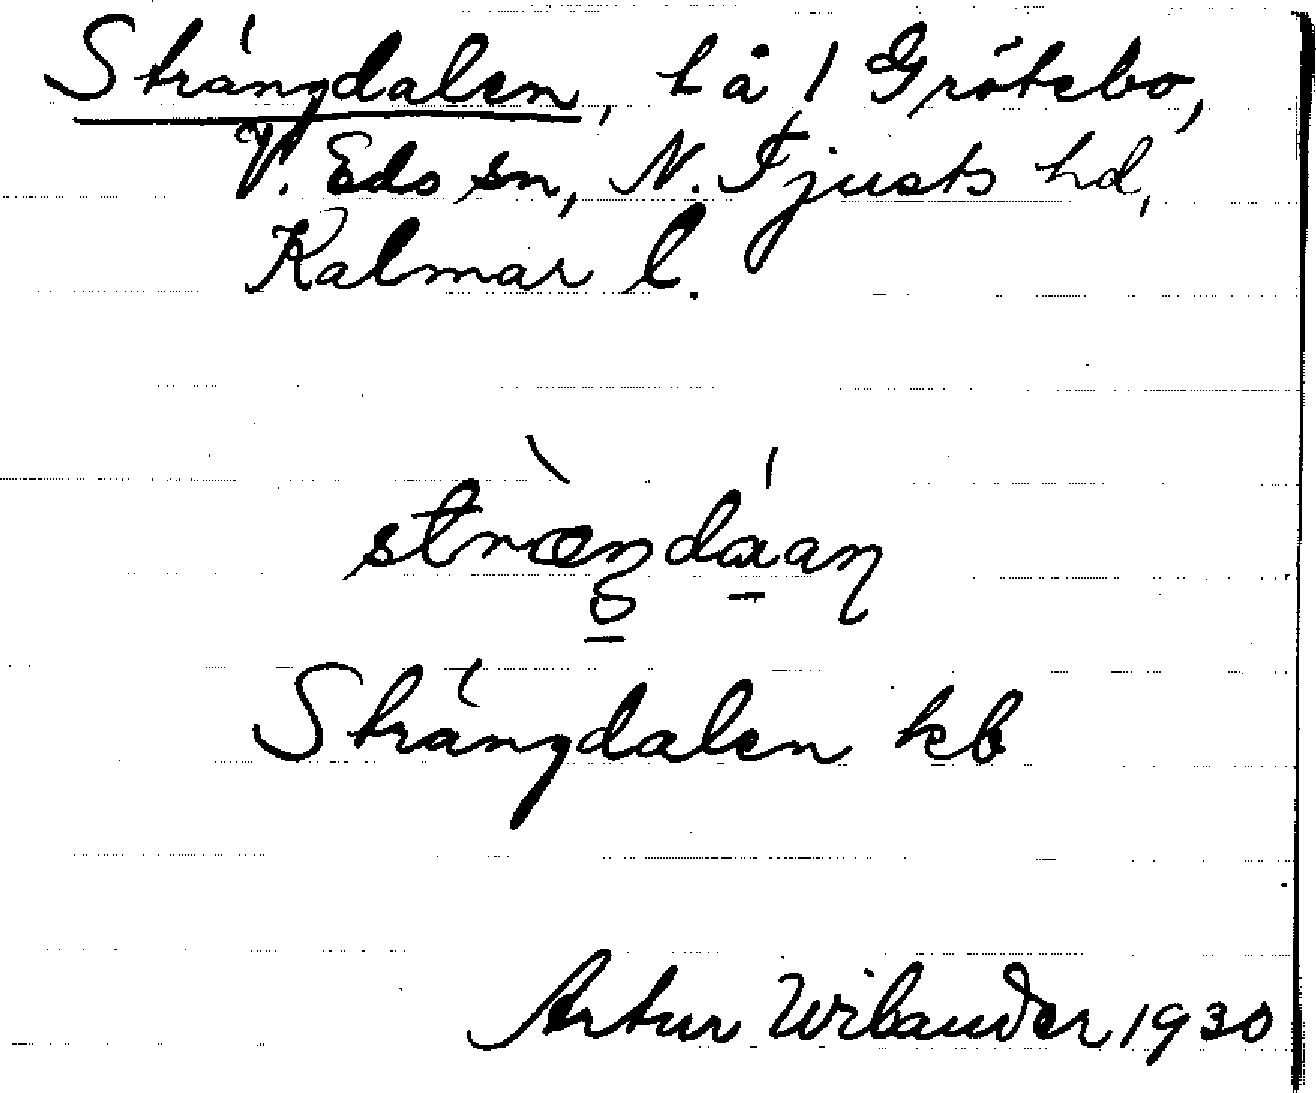 Strångdalen, t å / Grötebo,
V. Eds sn, N. Tjusts hd,
Kalmar l.
Strångdalen kb
Artur Wilander 1930